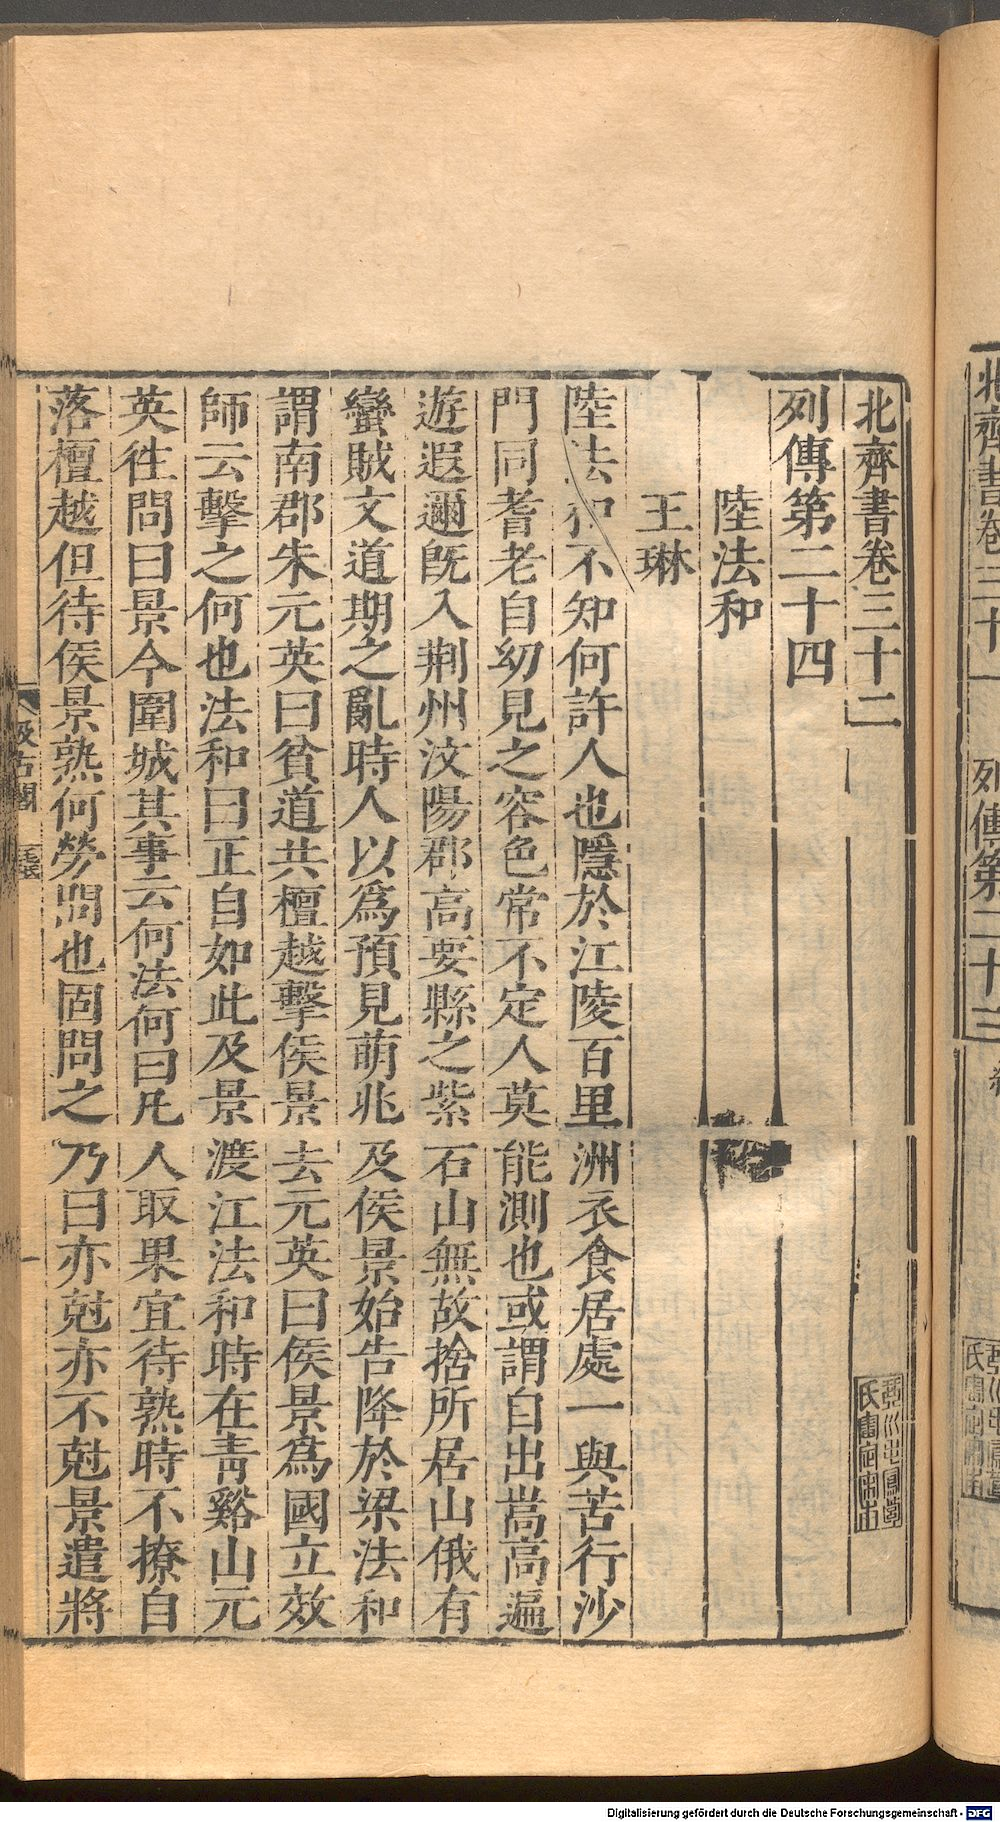 北齊書卷三十一 列傳第二十三
北齊書卷三十二
琴川毛鳳苞
氏審定宋本
列傳第二十四
陸法和
王琳
陸法和不知何許人也隱於江陵百里洲衣食居處一與苦行沙
門同耆老自幼見之容色常不定人莫能測也或謂自出嵩高遍
遊遐邇旣入荆州汶陽郡高要縣之紫石山無故捨所居山俄有
蠻賊文道期之亂時人以爲預見萌兆及侯景始告降於梁法和
謂南郡朱元英曰貧道共檀越擊侯景去元英曰侯景爲國立效
師云擊之何也法和曰正自如此及景渡江法和時在靑谿山元
英徃問曰景今圍城其事云何法何曰凡人取果宜待熟時不撩自
落檀越但待侯景熟何勞問也固問之乃曰亦尅亦不尅景遣將
汲古閣
Digitalisierung gefördert durch die Deutsche Forschungsgemeinschaft - DFG